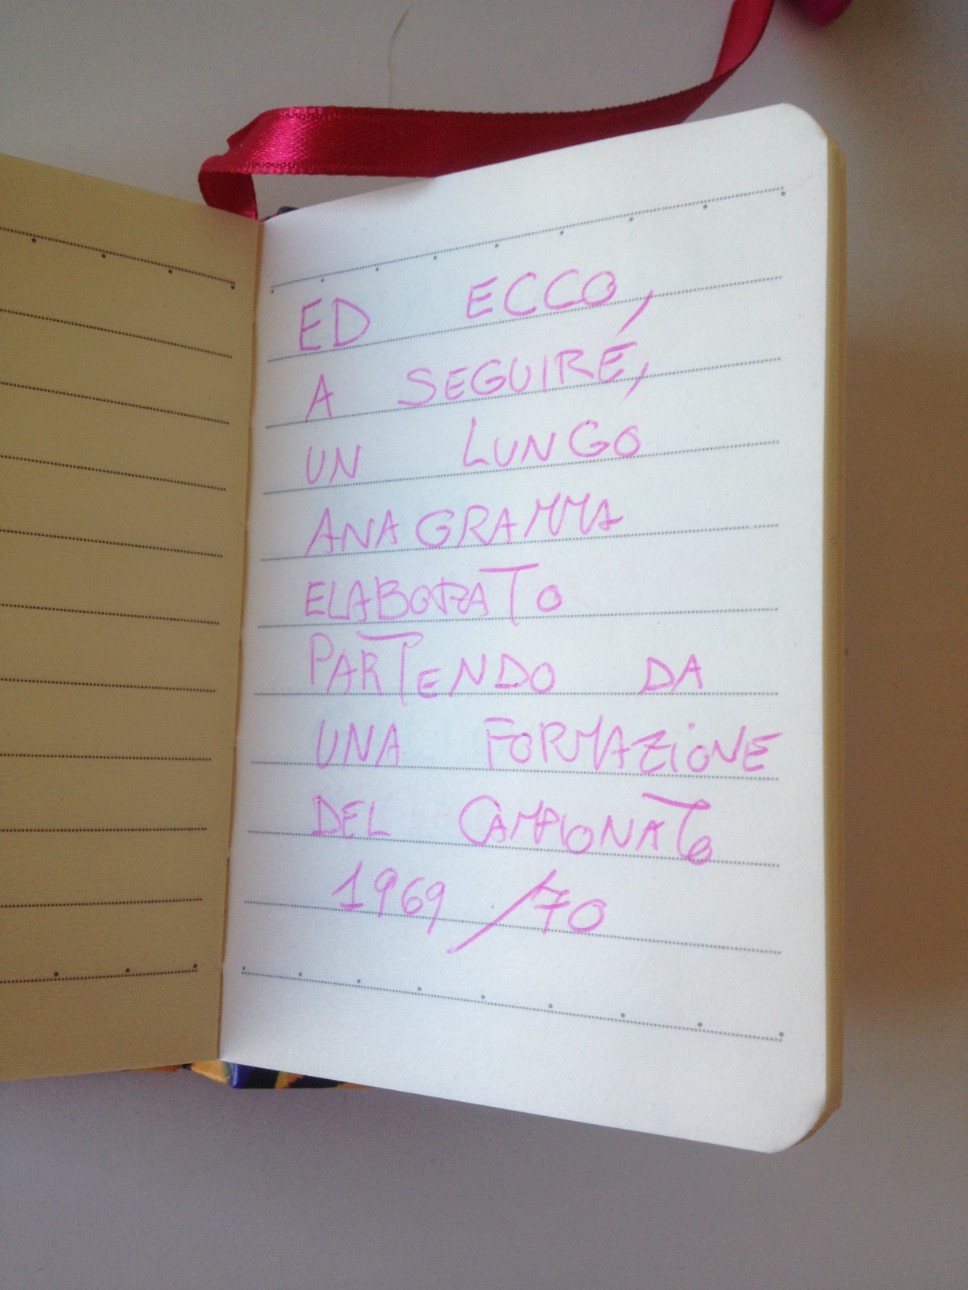 ED ECCO,
A SEGUIRE,
UN LUNGO
ANAGRAMMA
ELABORATO
PARTENDO DA
UNA FORMAZIONE
DEL CAMPIONATO
1969/70